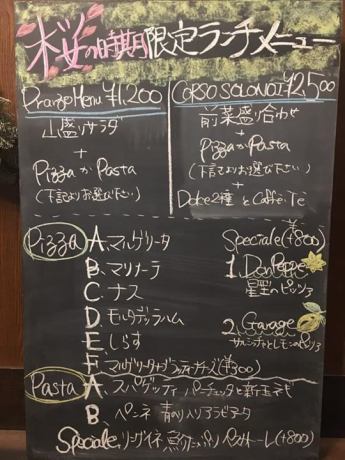 桜の時期限定ランチメニュー
Pranzo Menu ¥1,200
山盛りサラダ
+
Pizza か Pasta
(下記よりお選び下さい)
CORSO SOLONOI ¥2,500
前菜盛り合わせ
+
Pizza か Pasta
(下記よりお選び下さい)
+
Dolce2種 と Caffè・Tè
Pizza
A. マルゲリータ
B. マリナーラ
C. ナス
D. モルタデッラハム
E. しらす
F. マルゲリータ (¥300)
Speciale (+800)
1. Don Peppe
星型のピッツァ
2. Garage
サルシッチャとレモンのピッツァ
Pasta
A. スパゲッティ パンチェッタと新玉ネギ
B. ペンネ 青のり入りアラビアータ
Speciale. リングイネ ペスカトーレ (+800)